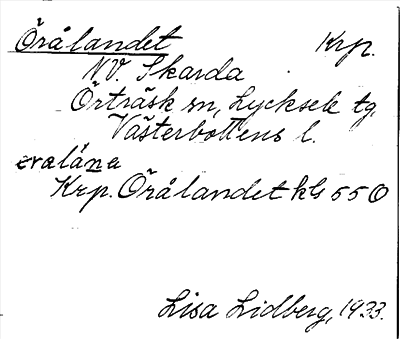 Örålandet Krp.
NV. Skarda
Örträsk sn, Lycksele tg,
Västerbottens l.
Krp. Örålandet kls 550
Lisa Lidberg, 1933.